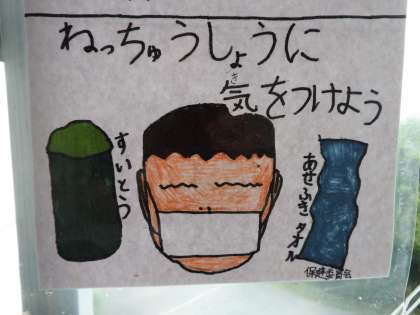 ねっちゅうしょうに
気をつけよう
き
すいとう
あせふきタオル
保健委員会